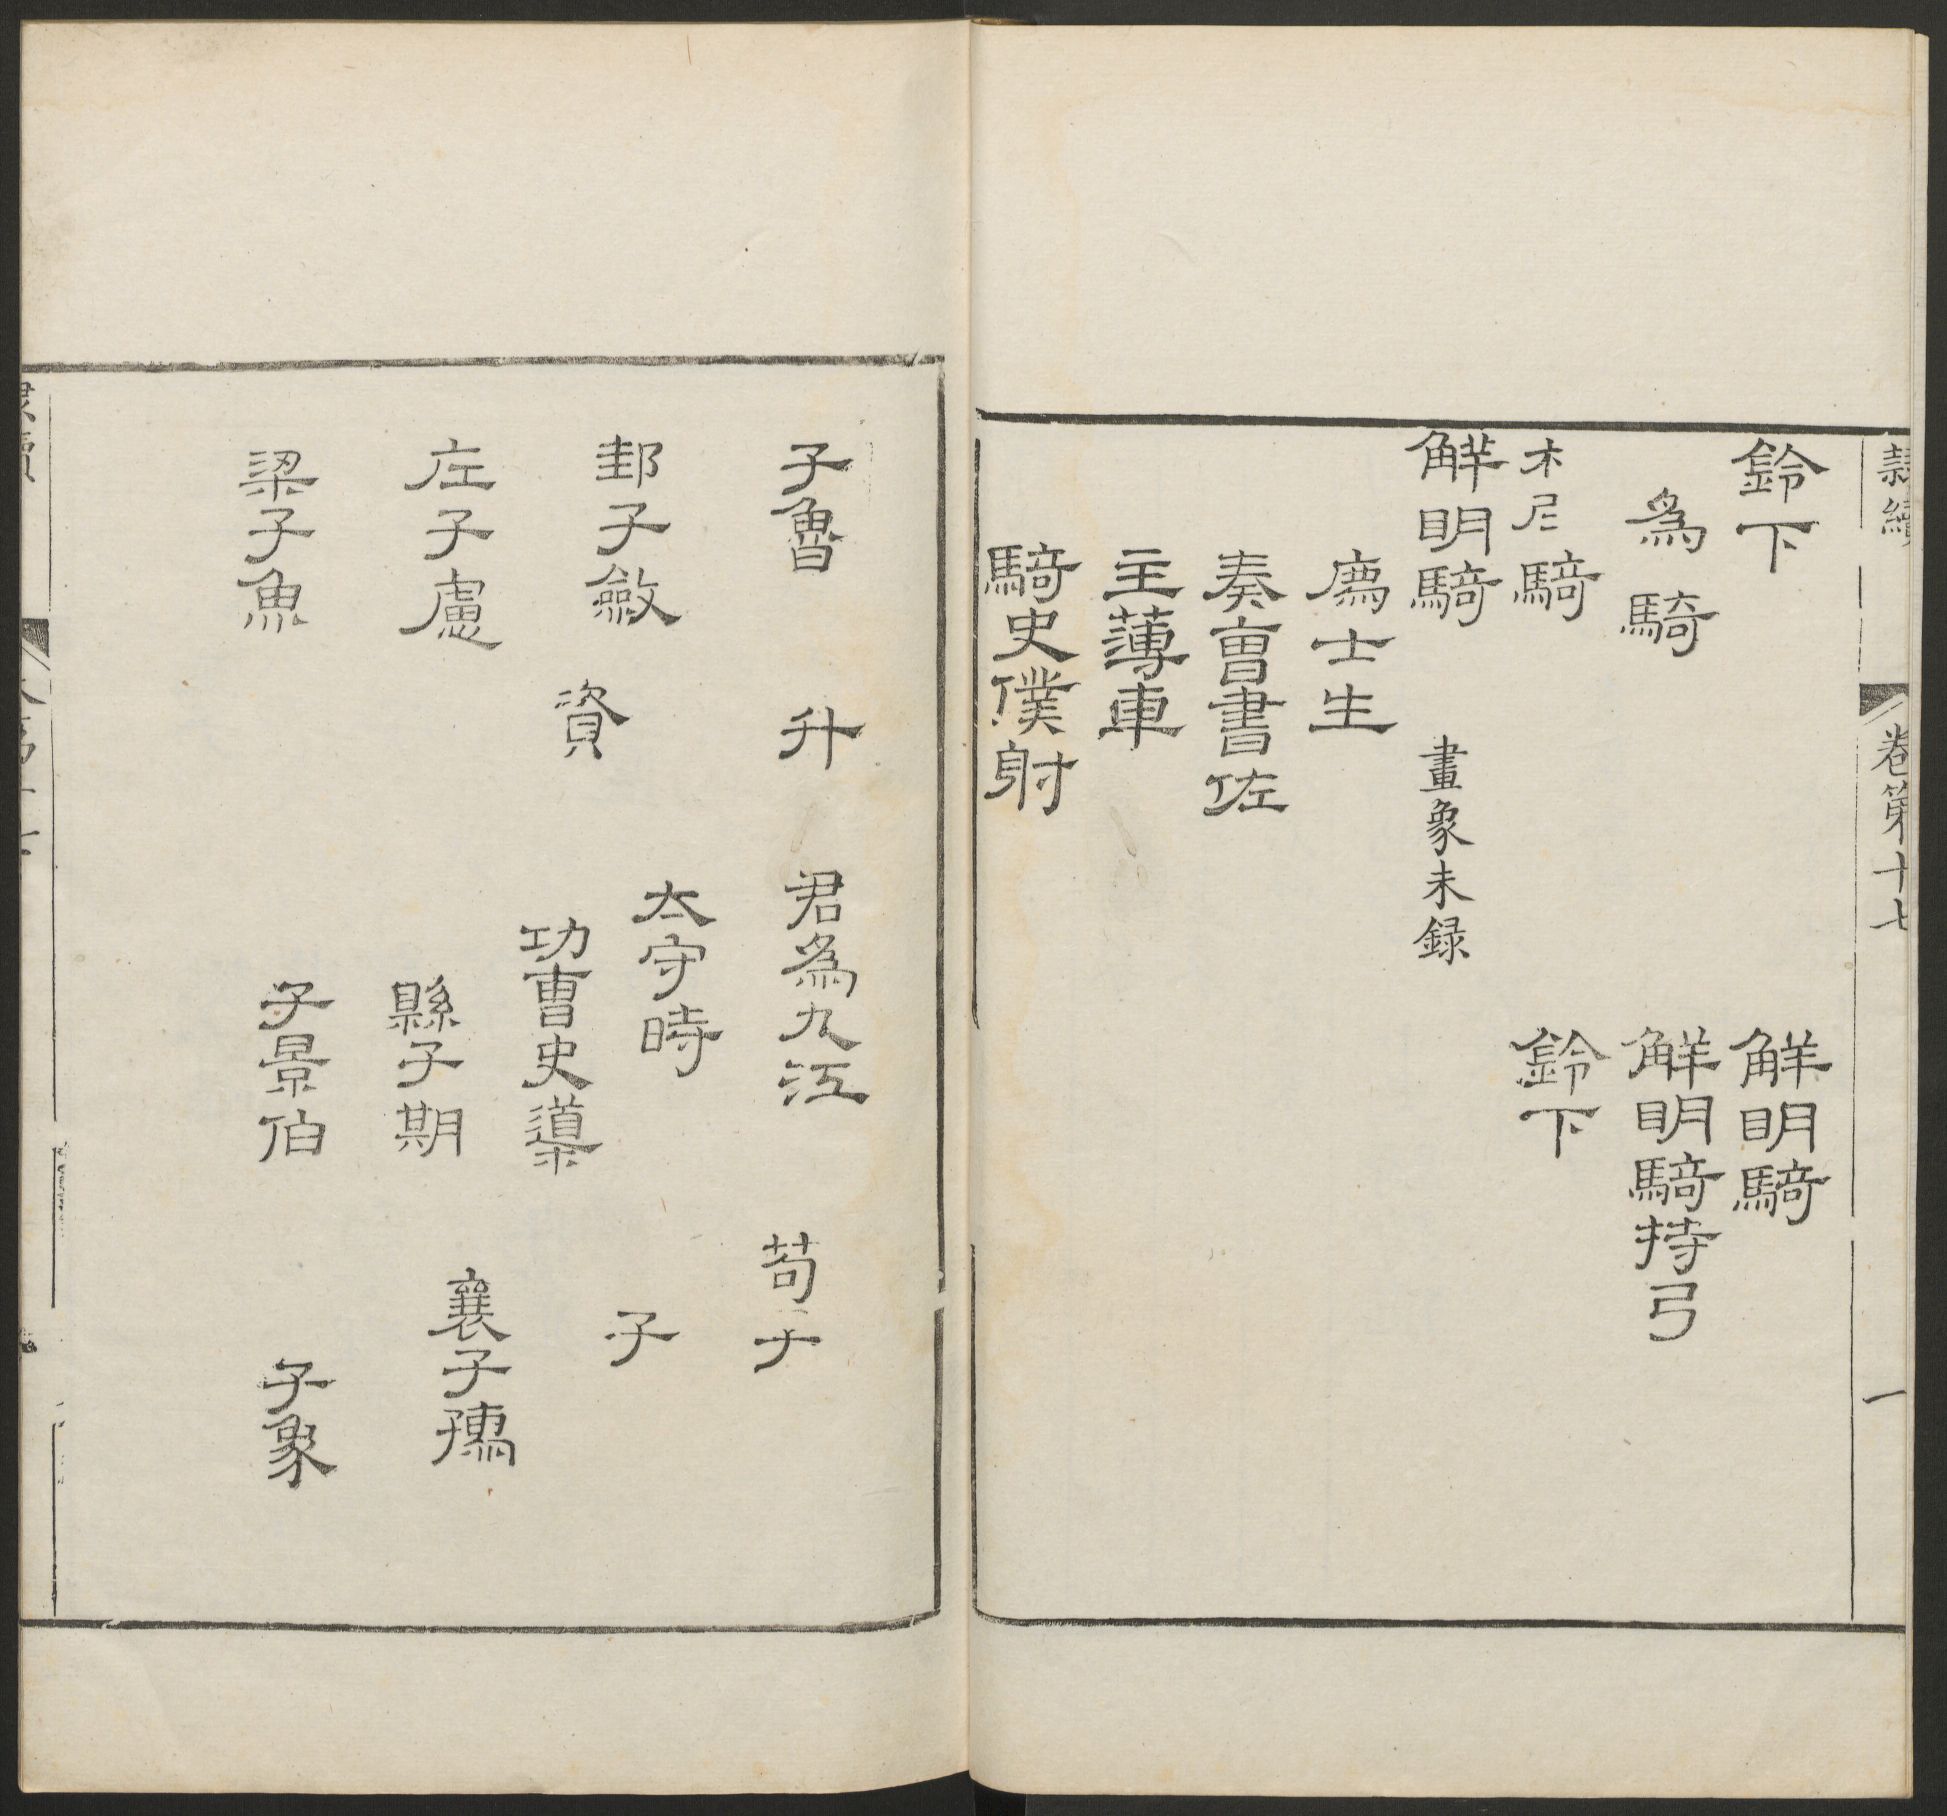 隸續
卷第十七
一
鈴下
解明騎
為騎
解明騎持弓
木
騎
鈴下
解明騎
畫象未録
為士生
奏曹書佐
主薄車
騎史僕射
子魯
升
君為九江
苟
子敛
太守時
子
資
功曹史導
左子慮
縣子期
襄子孺
梁子魚
子景伯
子象